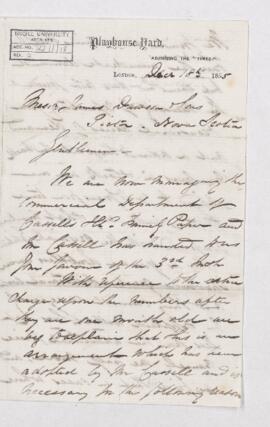 McGILL UNIVERSITY
ARCHIVES
ACC. NO.
REF.
Playhouse Yard,
ADJOINING THE "TIMES"
London, Decr 18th 1855
Messrs James Dawson & Sons
Pictou - Nova Scotia
Gentlemen
We are now managing the
Commercial Department of
Cassells Ill. Family Paper and
Mr Cassell has handed to us
your favour of the 3rd
With reference to the extra
charge upon the numbers after
they are one month old we
beg to explain that this is an
arrangement which has been
adopted by Mr Cassell and is
necessary for the following reason